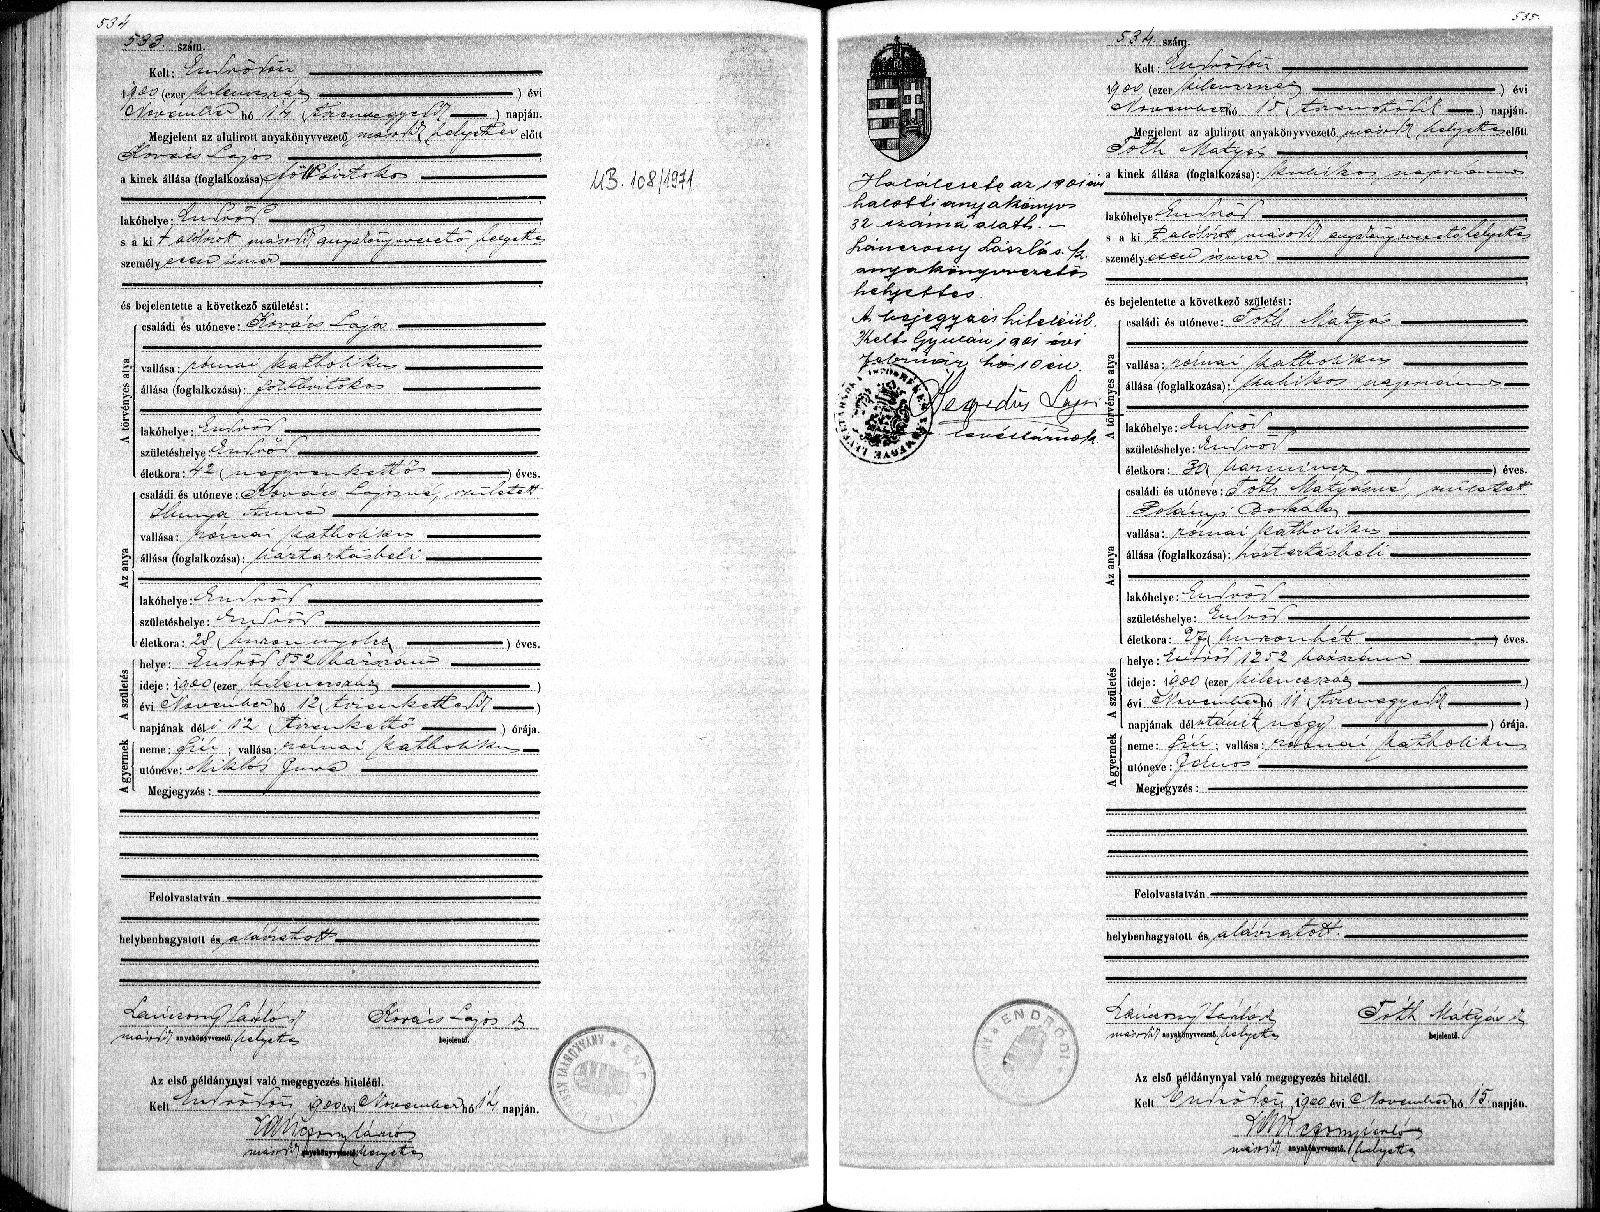 534
533. szám.
Kelt: Endrődön
1900 (ezer kilenczszáz) évi
November hó 14 (tizennegyedik) napján.
Megjelent az alulirott anyakönyvvezető, másodh helyettes előtt
Kovács Lajos
a kinek állása (foglalkozása): földbirtokos
lakóhelye: Endrőd
s a ki t alólirott másodh anyakönyvvezető helyettes
személyesen ismer
és bejelentette a következő születést:
A törvényes atya
családi és utóneve: Kovács Lajos
vallása: római katholikus
állása (foglalkozása): földbirtokos
lakóhelye: Endrőd
születéshelye: Endrőd
életkora: 42 (negyvenkettő) éves.
Az anya
családi és utóneve: Kovács Lajosné, született
Hunya Anna
vallása: római katholikus
állása (foglalkozása): háztartásbeli
lakóhelye: Endrőd
születéshelye: Endrőd
életkora: 28 (huszonnyolcz) éves.
A születés
helye: Endrőd 852 házszám
ideje: 1900 (ezer kilenczszáz)
évi November hó 12 (tizenkettedik)
napjának déli 12 (tizenkettő) órája.
A gyermek
neme: fiú; vallása: római katholikus
utóneve: Miklós
Megjegyzés:
Felolvastatván
helybenhagyatott és aláiratott
Lánczony László sk
másodh anyakönyvvezető, helyettes
Kovács Lajos sk
bejelentő.
Az első példánynyal való megegyezés hiteléül.
Kelt Endrődön 1900 évi November hó 14 napján.
másodh anyakönyvvezető, helyettes
108/1971
535.
Halálesete az 1901 évi
halotti anyakönyv
32 száma alatt. —
Lánczony László s. k.
anyakönyvvezető
helyettes.
A bejegyzés hiteléül.
Kelt Gyulán 1901 évi
február hó 10 én.
Hegedűs Lajos
levéltárnok
534 szám.
Kelt: Endrődön
1900 (ezer kilenczszáz) évi
November hó 15 (tizenötödik) napján.
Megjelent az alulirott anyakönyvvezető, másodh helyettes előtt
Tóth Mátyás
a kinek állása (foglalkozása): kubikos napszámos
lakóhelye: Endrőd
s a ki t alólirott másodh anyakönyvvezető helyettes
személyesen ismer
és bejelentette a következő születést:
A törvényes atya
családi és utóneve: Tóth Mátyás
vallása: római katholikus
állása (foglalkozása): kubikos napszámos
lakóhelye: Endrőd
születéshelye: Endrőd
életkora: 30 (harmincz) éves.
Az anya
családi és utóneve: Tóth Mátyásné, született
Polányi Borbála
vallása: római katholikus
állása (foglalkozása): háztartásbeli
lakóhelye: Endrőd
születéshelye: Endrőd
életkora: 27 (huszonhét) éves.
A születés
helye: Endrőd 1252 házszám
ideje: 1900 (ezer kilenczszáz)
évi November hó 11 (tizenegyedik)
napjának délutáni négy órája.
A gyermek
neme: fiú; vallása: római katholikus
utóneve: János
Megjegyzés:
Felolvastatván
helybenhagyatott és aláiratott.
Lánczony László sk
másodh anyakönyvvezető, helyettes
Tóth Mátyás sk
bejelentő.
Az első példánynyal való megegyezés hiteléül.
Kelt Endrődön, 1900 évi November hó 15 napján.
másodh anyakönyvvezető, helyettes
ENDRŐDI